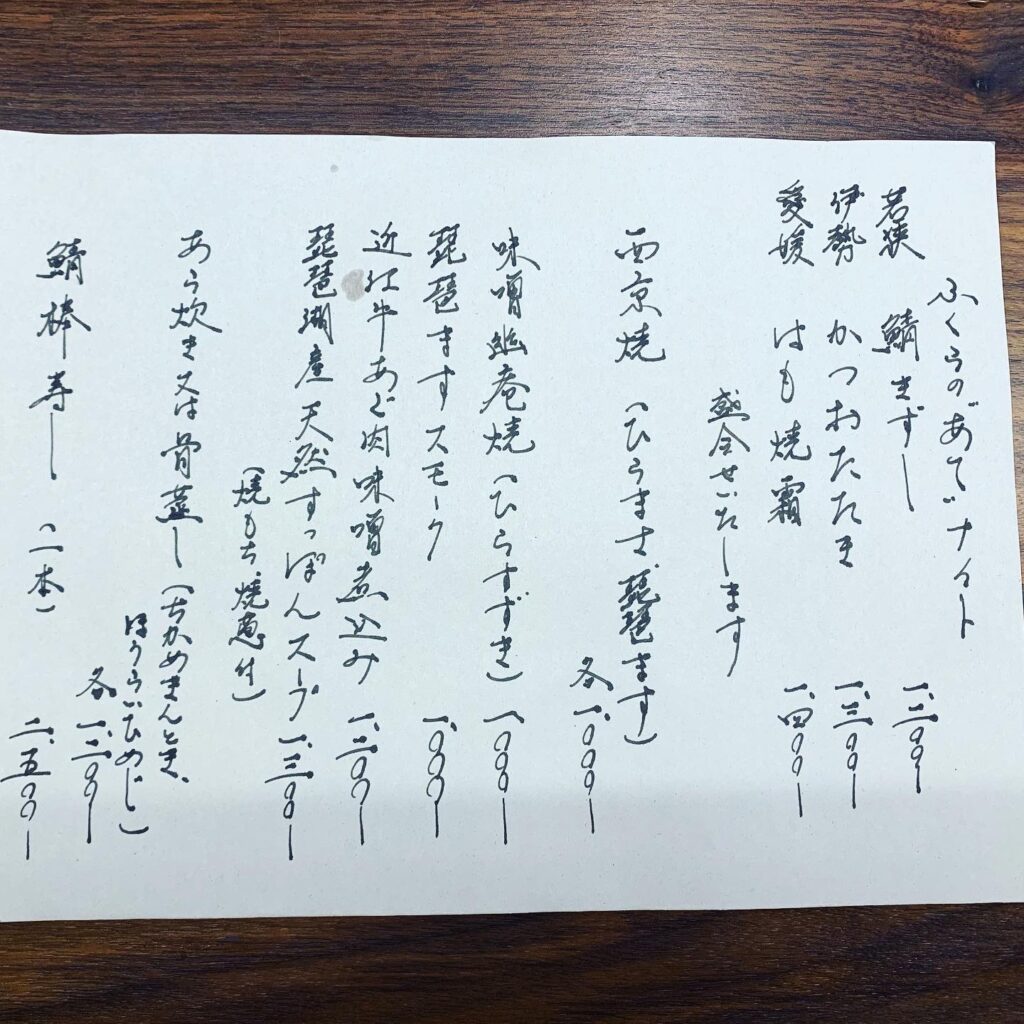 ふくらのあてナイト
若狭 鯖きずし 一、二〇〇ー
伊勢 かつおたたき 一、三〇〇ー
愛媛 はも焼霜 一、四〇〇ー
盛合せいたします
西京焼(ひらまさ、琵琶ます) 各一、〇〇〇ー
味噌幽庵焼(ひらすずき) 一、〇〇〇ー
琵琶ますスモーク 一、〇〇〇ー
近江牛あご肉味噌煮込み 一、二〇〇ー
琵琶湖産天然すっぽんスープ 一、三〇〇ー
(焼もち、焼葱付)
あら炊き又は骨蒸し(ちかめきんとき、
ほうらいひめじ)
各一、二〇〇ー
鯖棒寿し (一本) 二、五〇〇ー